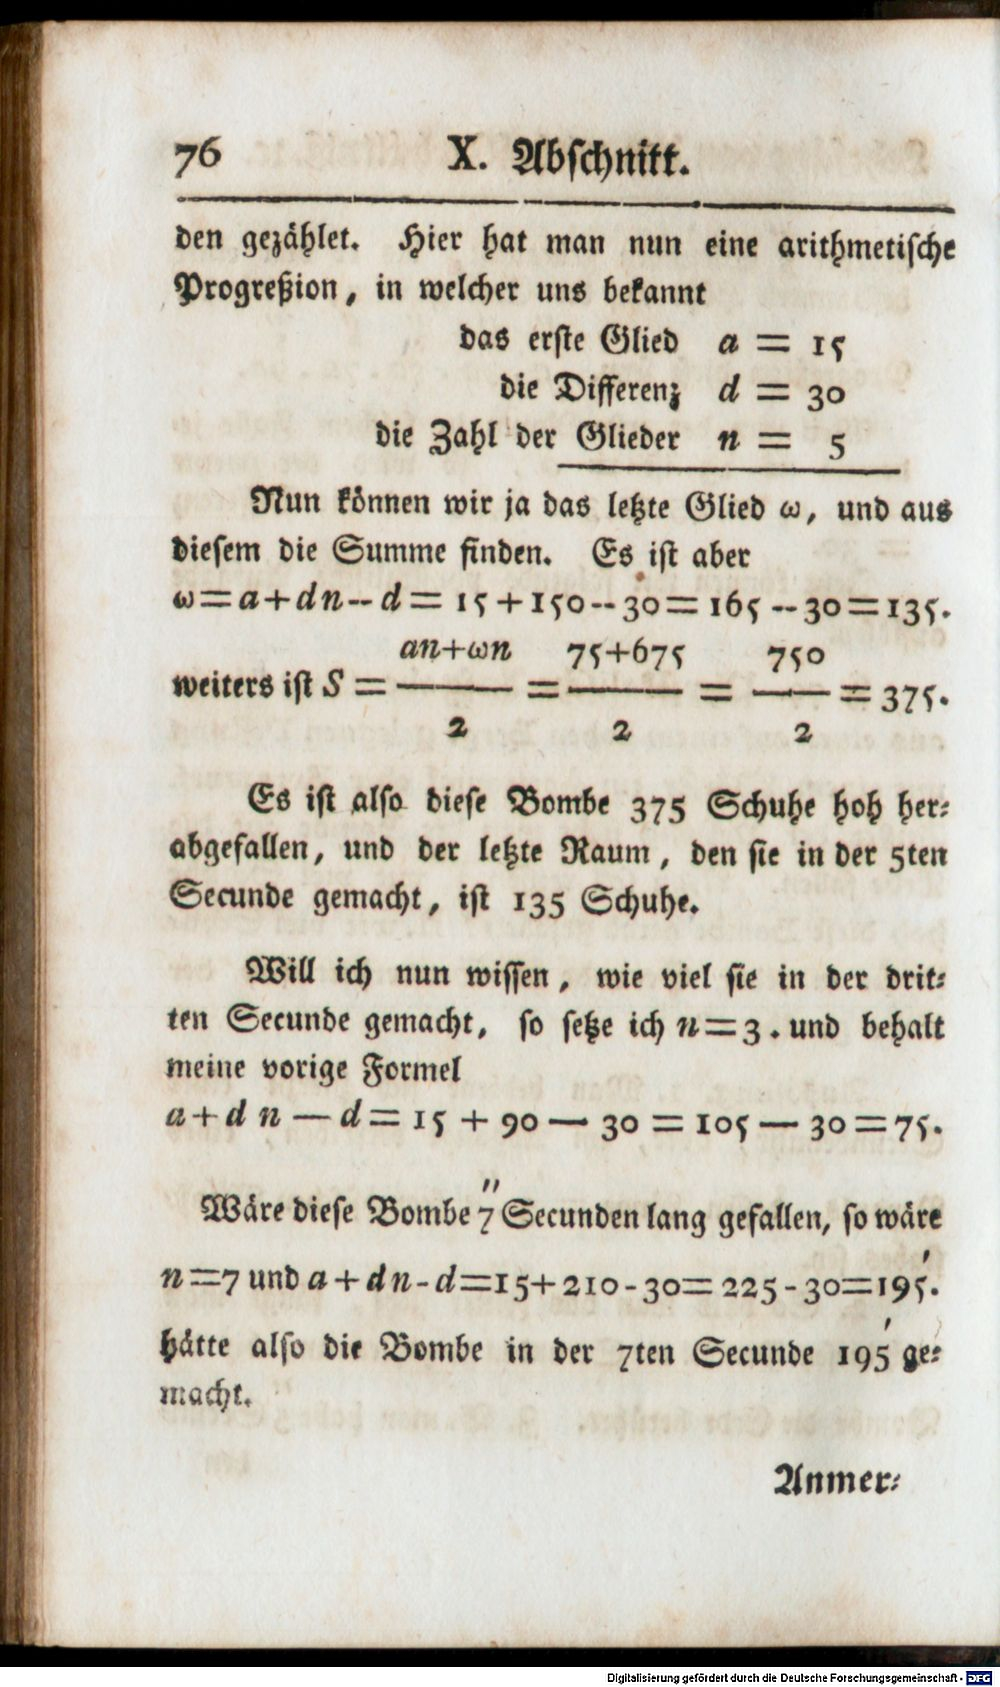 76 X. Abschnitt.
den gezählet. Hier hat man nun eine arithmetische
Progreßion, in welcher uns bekannt
das erste Glied a = 15
die Differenz d = 30
die Zahl der Glieder n = 5
Nun können wir ja das letzte Glied ω, und aus
diesem die Summe finden. Es ist aber
ω=a+dn--d= 15+150--30=165--30=135.
an+ωn 75+675 750
weiters ist S = —— = —— = —— = 375.
2 2 2
Es ist also diese Bombe 375 Schuhe hoh her⸗
abgefallen, und der letzte Raum, den sie in der 5ten
Secunde gemacht, ist 135 Schuhe.
Will ich nun wissen, wie viel sie in der drit⸗
ten Secunde gemacht, so setze ich n=3. und behalt
meine vorige Formel
a+dn — d= 15 + 90 — 30 = 105 — 30=75.
Wäre diese Bombe 7″ Secunden lang gefallen, so wäre
n=7 und a+dn-d=15+210-30=225-30=195′.
hätte also die Bombe in der 7ten Secunde 195′ ge⸗
macht.
Anmer⸗
Digitalisierung gefördert durch die Deutsche Forschungsgemeinschaft - DFG